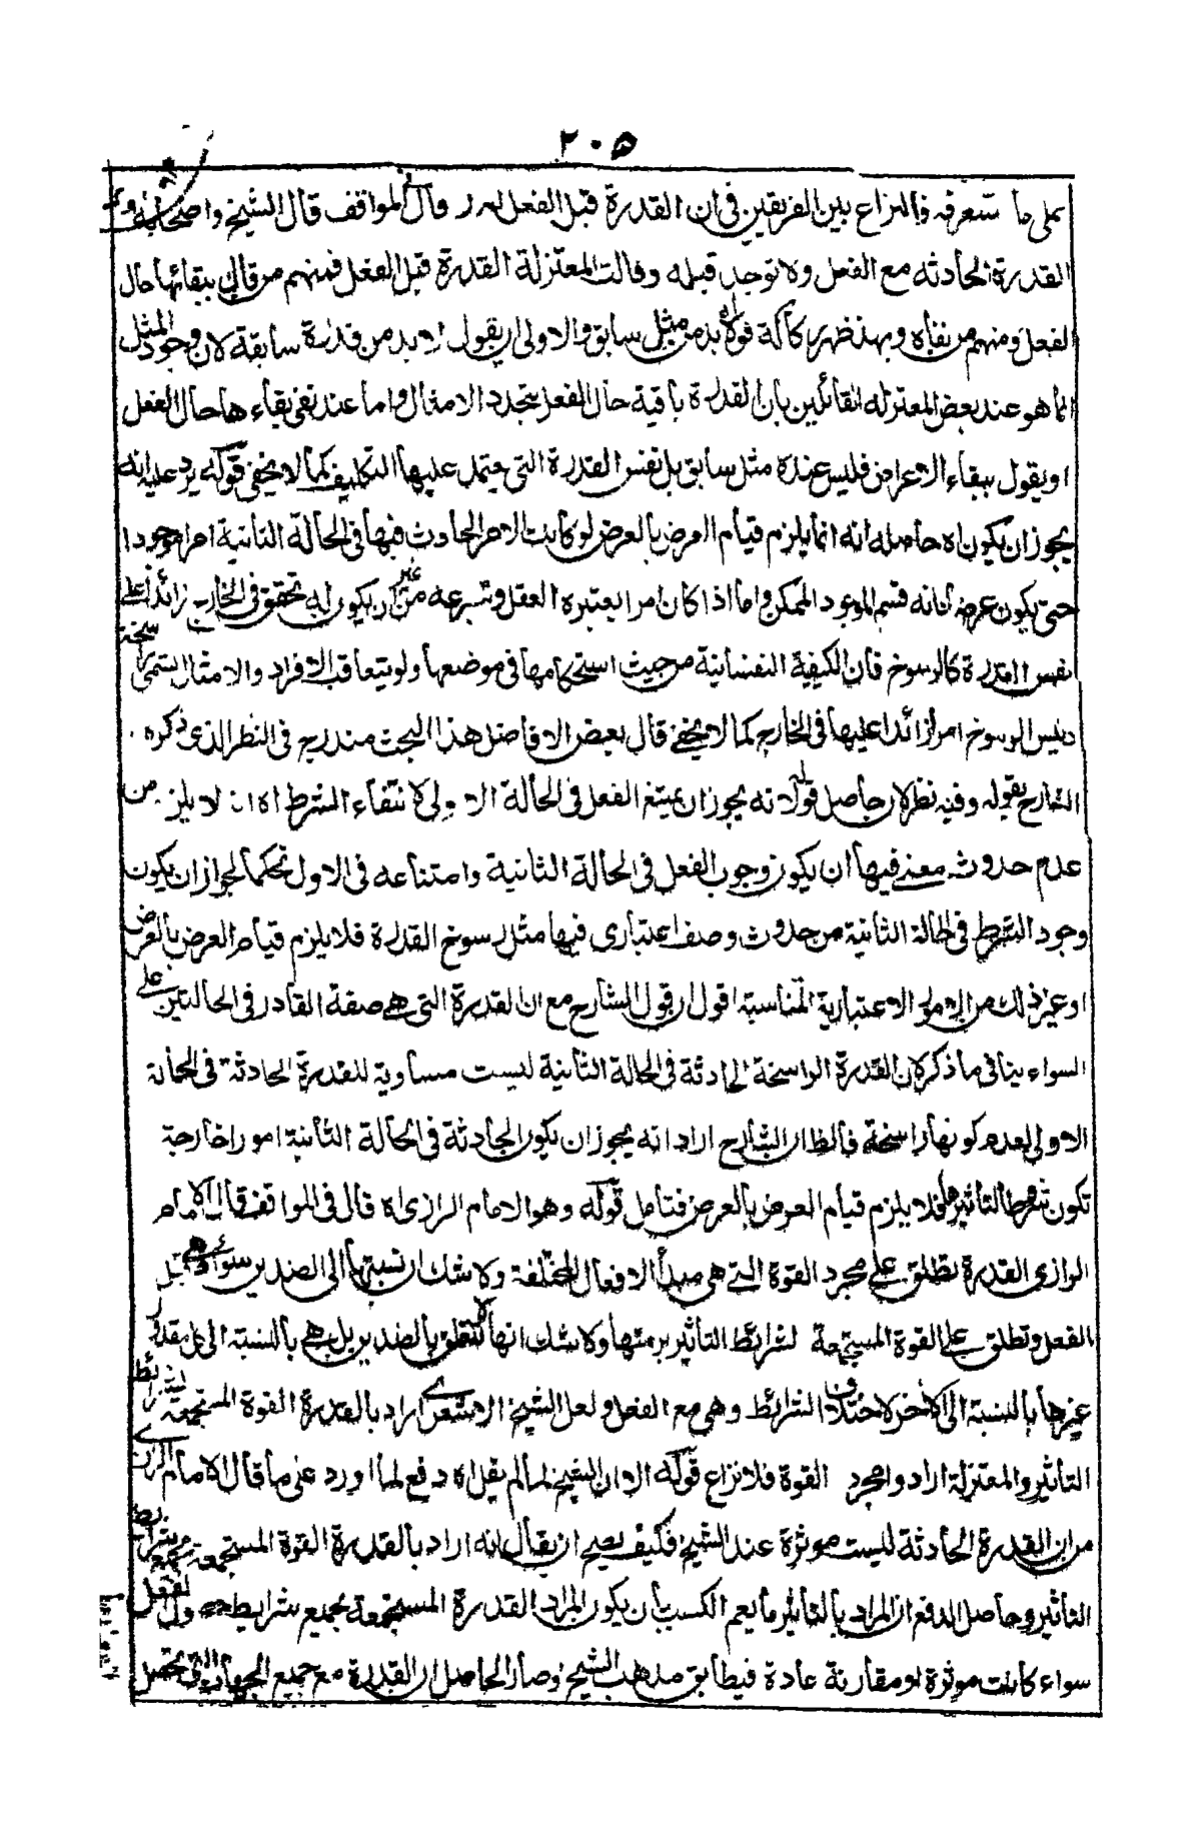 ٢٠٥
على ما ستعرفه فالنزاع بين الفريقين في ان القدرة قبل الفعل قال في المواقف قال الشيخ واصحابه
القدرة الحادثة مع الفعل ولا توجد قبله وقالت المعتزلة القدرة قبل الفعل فمنهم من قال ببقائها حال
الفعل ومنهم من نفاه وبهذا ظهر ركاكة قوله لابد من مثل سابق والاولى ان يقول لابد من قدرة سابقة لان وجود المثل
انما هو عند بعض المعتزلة القائلين بان القدرة باقية حال الفعل بتجدد الامثال واما عند نفي بقاءها حال الفعل
او يقول ببقاء الاعراض فليس عنده مثل سابق بل نفس القدرة التي يعتمد عليها التكليف كما لا يخفى قوله يرد عليه انه
يجوز ان يكون اه حاصله انه انما يلزم قيام العرض بالعرض لو كانت الامر الحادث فيها في الحالة الثانية امرا موجودا
حتى يكون عرضا فانه قسم الموجود الممكن واما اذا كان امرا يعتبره العقل وينتزعه من غير ان يكون له تحقق في الخارج زائدا على
نفس القدرة كالرسوخ فان الكيفية النفسانية من حيث استحكامها في موضعها ولو بتعاقب الافراد والامثال يسمى راسخة
وليس الرسوخ امرا زائدا عليها في الخارج كما لا يخفى قال بعض الافاضل هذا البحث مندرج في النظر الذي ذكره
الشارح بقوله وفيه نظر لان حاصل قوله لانه يجوز ان يمتنع الفعل في الحالة الاولى لانتفاء الشرط اه ان لا يلزم من
عدم حدوث معنى فيها ان يكون وجوب الفعل في الحالة الثانية وامتناعه في الاول تحكما لجواز ان يكون
وجود الشرط في الحالة الثانية من حدوث وصف اعتباري فيها مثل رسوخ القدرة فلا يلزم قيام العرض بالعرض
او غير ذلك من الامور الاعتبارية المناسبة اقول ان قول الشارح مع ان القدرة التي هي صفة القادر في الحالتين على
السواء ينافي ما ذكره لان القدرة الراسخة الحادثة في الحالة الثانية ليست مساوية للقدرة الحادثة في الحالة
الاولى لعدم كونها راسخة فالظ ان الشارح اراد انه يجوز ان يكون الحادثة في الحالة الثانية امورا خارجة
تكون شرطا لتأثيرها فلا يلزم قيام العرض بالعرض فتامل قوله وهو الامام الرازي اه قال في المواقف قال الامام
الرازي القدرة تطلق على مجرد القوة التي هي مبدأ الافعال المختلفة ولا شك ان نسبتها الى الضدين سواء وهي قبل
الفعل وتطلق على القوة المستجمعة لشرائط التأثير برمتها ولا شك انها لا تتعلق بالضدين بل هي بالنسبة الى كل مقدور
غيرها بالنسبة الى الآخر لاختلاف الشرائط وهي مع الفعل ولعل الشيخ الاشعري اراد بالقدرة القوة المستجمعة لشرائط
التأثير والمعتزلة ارادوا مجرد القوة فلا نزاع قوله الا ان الشيخ لما لم يقل اه دفع لما اورد على ما قال الامام الرازي
من ان القدرة الحادثة ليست موثرة عند الشيخ فكيف يصح ان يقال انه اراد بالقدرة القوة المستجمعة بشرائط
التأثير وحاصل الدفع ان المراد بالتأثير ما يعم الكسب بان يكون المراد القدرة المستجمعة بجميع شرائط حصول الفعل
سواء كانت موثرة او مقارنة عادة فيطابق مذهب الشيخ وصار الحاصل ان القدرة مع جميع الجهات التي يحصل